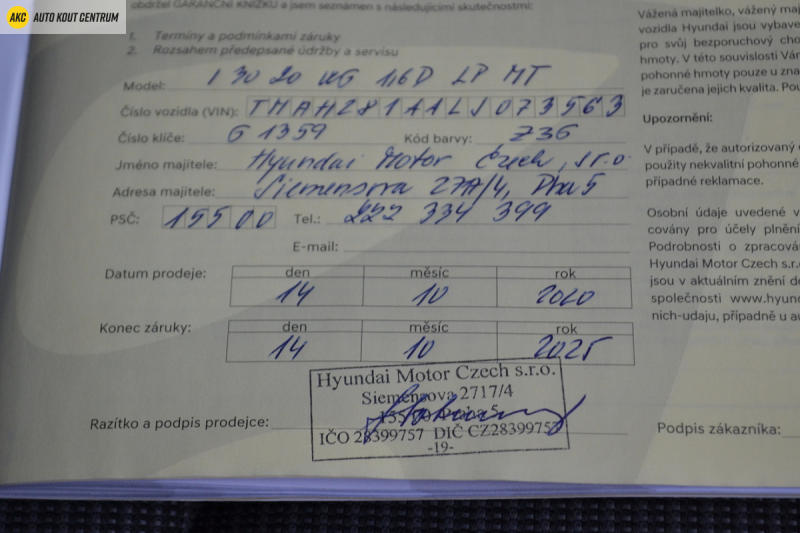 AKC AUTO KOUT CENTRUM
obdržel GARANČNÍ KNÍŽKU a jsem seznámen s následujícími skutečnostmi:
1. Termíny a podmínkami záruky
2. Rozsahem předepsané údržby a servisu
Model: I 30 20 WG 1,6D LP MT
Číslo vozidla (VIN): TMAH281AALJ073563
Číslo klíče: G 1359 Kód barvy: Z3G
Jméno majitele: Hyundai Motor Czech, s.r.o.
Adresa majitele: Siemensova 27A/4, Pha 5
PSČ: 155 00 Tel.: 222 334 399
E-mail:
Datum prodeje: den měsíc rok
14 10 2020
Konec záruky: den měsíc rok
14 10 2025
Razítko a podpis prodejce:
Hyundai Motor Czech s.r.o.
Siemensova 2717/4
IČO 28399757 DIČ CZ28399757
-19-
Podpis zákazníka:
Vážená majitelko, vážený
vozidla Hyundai jsou
pro svůj bezporuchový
hmoty. V této souvislosti
pohonné hmoty pouze u
je zaručena jejich kvalita.
Upozornění:
V případě, že autorizovaný
použity nekvalitní pohonné
případné reklamace.
Osobní údaje uvedené v
covány pro účely plnění
Podrobnosti o
Hyundai Motor Czech s.r.o.
jsou v aktuálním znění
společnosti
nich-udaju, případně u